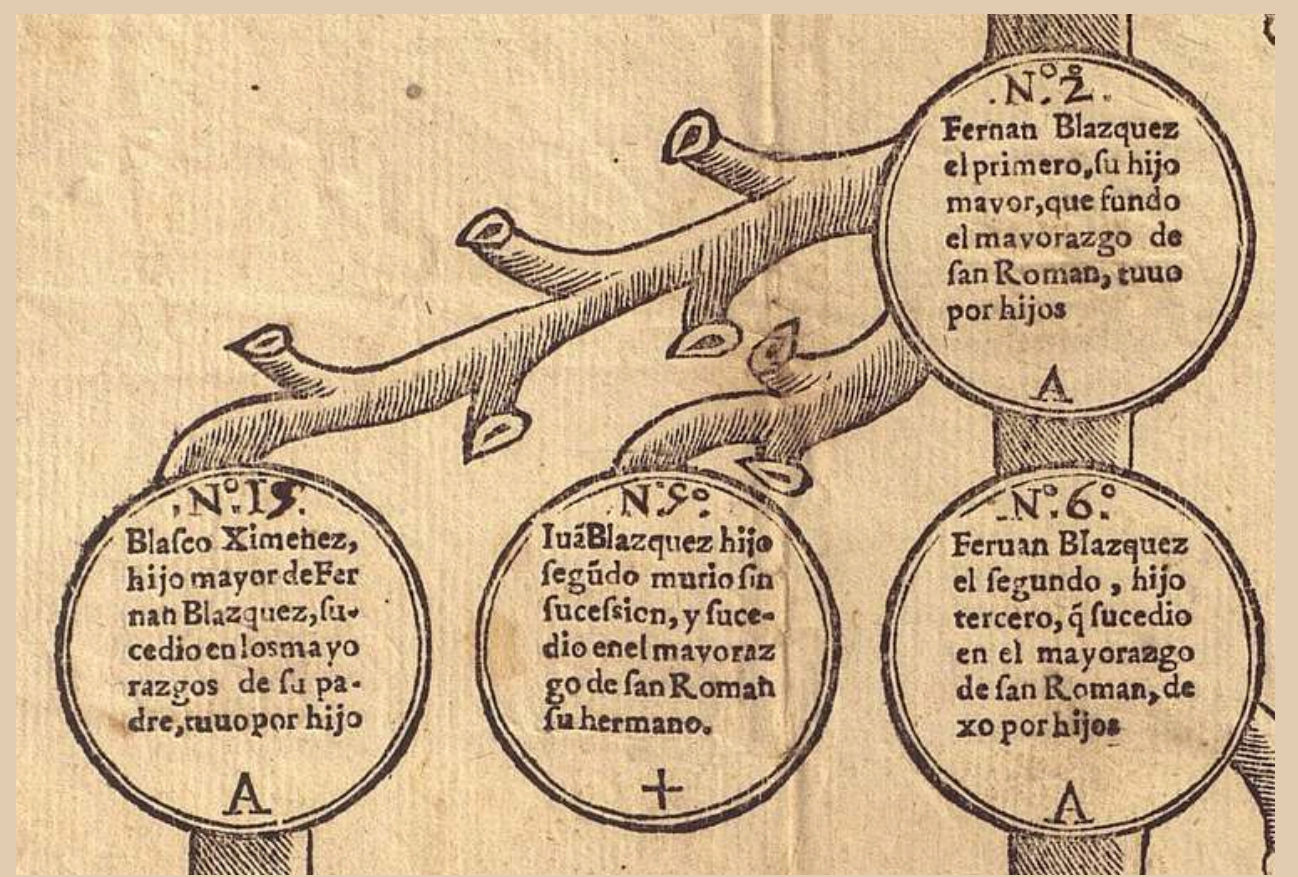 .N.º2.
Fernan Blazquez
el primero, ſu hijo
mayor, que fundo
el mayorazgo de
ſan Roman, tuuo
por hijos
A
.Nº.15.
Blaſco Ximenez,
hijo mayor de Fer
nan Blazquez, ſu-
cedio en los mayo
razgos de ſu pa-
dre, tuuo por hijo
A
N.5º.
Iuã Blazquez hijo
ſegũdo murio ſin
ſuceſsion, y ſuce-
dio en el mayoraz
go de ſan Roman
ſu hermano.
+
.Nº.6º.
Feruan Blazquez
el ſegundo, hijo
tercero, q̃ ſucedio
en el mayorazgo
de ſan Roman, de
xo por hijos
A